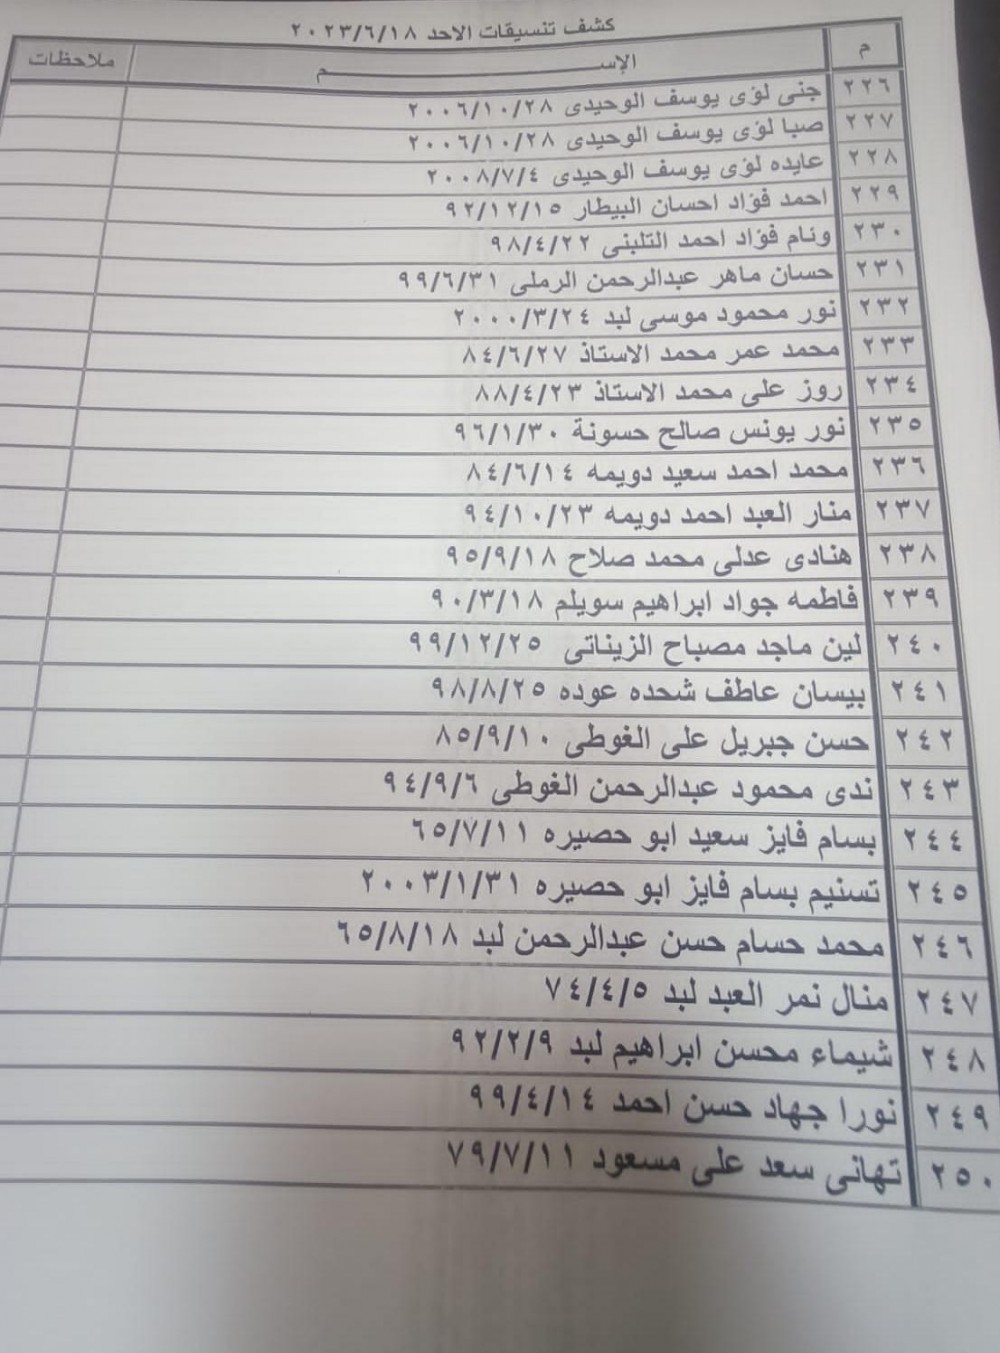 كشف تنسيقات الاحد ٢٠٢٣/٦/١٨
م الإســـــــم ملاحظات
٢٢٦ جنى لؤى يوسف الوحيدى ٢٠٠٦/١٠/٢٨
٢٢٧ صبا لؤى يوسف الوحيدى ٢٠٠٦/١٠/٢٨
٢٢٨ عايده لؤى يوسف الوحيدى ٢٠٠٨/٧/٤
٢٢٩ احمد فؤاد احسان البيطار ٩٢/١٢/١٥
٢٣٠ ونام فؤاد احمد التلبنى ٩٨/٤/٢٢
٢٣١ حسان ماهر عبدالرحمن الرملى ٩٩/٦/٣١
٢٣٢ نور محمود موسى لبد ٢٠٠٠/٣/٢٤
٢٣٣ محمد عمر محمد الاستاذ ٨٤/٦/٢٧
٢٣٤ روز على محمد الاستاذ ٨٨/٤/٢٣
٢٣٥ نور يونس صالح حسونة ٩٦/١/٣٠
٢٣٦ محمد احمد سعيد دويمه ٨٤/٦/١٤
٢٣٧ منار العبد احمد دويمه ٩٤/١٠/٢٣
٢٣٨ هنادى عدلى محمد صلاح ٩٥/٩/١٨
٢٣٩ فاطمه جواد ابراهيم سويلم ٩٠/٣/١٨
٢٤٠ لين ماجد مصباح الزيناتى ٩٩/١٢/٢٥
٢٤١ بيسان عاطف شحده عوده ٩٨/٨/٢٥
٢٤٢ حسن جبريل على الغوطى ٨٥/٩/١٠
٢٤٣ ندى محمود عبدالرحمن الغوطى ٩٤/٩/٦
٢٤٤ بسام فايز سعيد ابو حصيره ٦٥/٧/١١
٢٤٥ تسنيم بسام فايز ابو حصيره ٢٠٠٣/١/٣١
٢٤٦ محمد حسام حسن عبدالرحمن لبد ٦٥/٨/١٨
٢٤٧ منال نمر العبد لبد ٧٤/٤/٥
٢٤٨ شيماء محسن ابراهيم لبد ٩٢/٢/٩
٢٤٩ نورا جهاد حسن احمد ٩٩/٤/١٤
٢٥٠ تهانى سعد على مسعود ٧٩/٧/١١